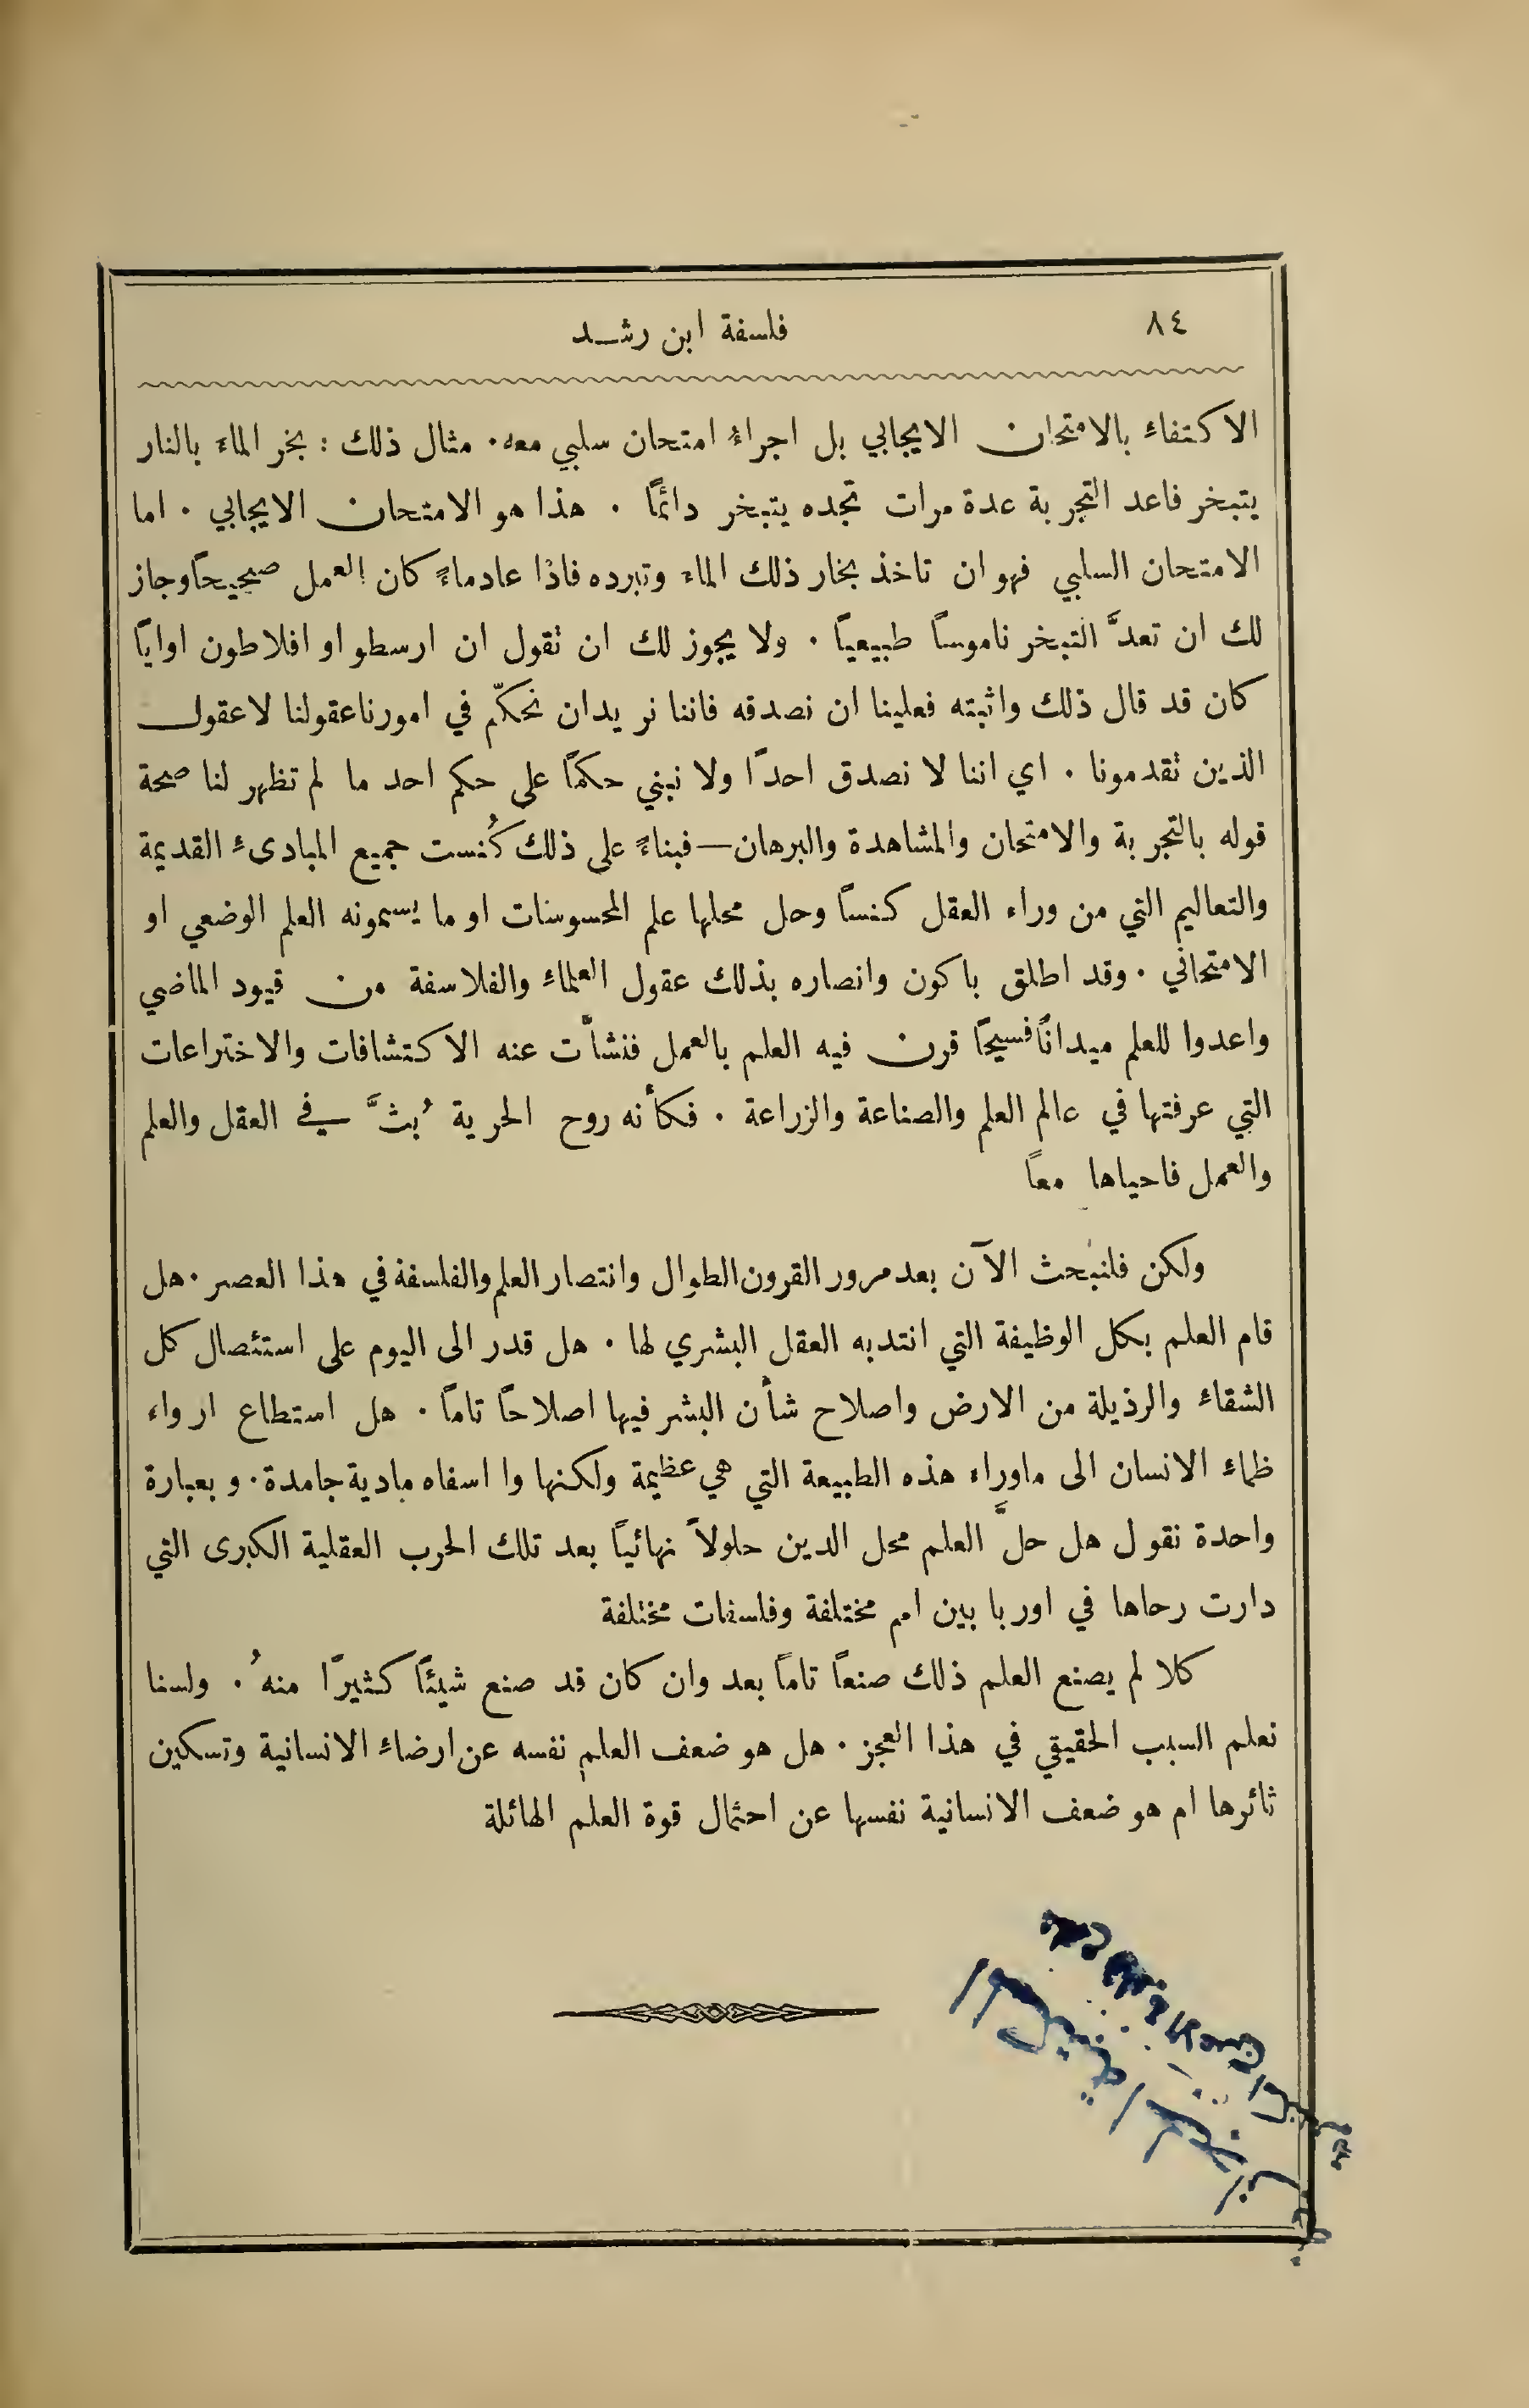 ٨٤
فلسفة ابن رشـد
الاكتفاءُ بالامتحان الايجابي بل اجراءُ امتحان سلبي معه. مثال ذلك : بخر الماء بالنار
يتبخر فاعد التجربة عدة مرات تجده يتبخر دائمًا . هذا هو الامتحان الايجابي . اما
الامتحان السلبي فهو ان تاخذ بخار ذلك الماء وتبرده فاذا عاد ماءً كان العمل صحيحًا وجاز
لك ان تعدَّ التبخر ناموسًا طبيعيًا . ولا يجوز لك ان تقول ان ارسطو او افلاطون او ايًا
كان قد قال ذلك واثبته فعلينا ان نصدقه فاننا نريد ان نحكّم في امورنا عقولنا لا عقول
الذين تقدمونا . اي اننا لا نصدق احدًا ولا نبني حكمًا على حكم احد ما لم تظهر لنا صحة
قوله بالتجربة والامتحان والمشاهدة والبرهان — فبناءً على ذلك كُنست جميع المبادىء القديمة
والتعاليم التي من وراء العقل كنسًا وحل محلها علم المحسوسات او ما يسمونه العلم الوضعي او
الامتحاني . وقد اطلق باكون وانصاره بذلك عقول العلماءِ والفلاسفة من قيود الماضي
واعدوا للعلم ميدانًا فسيحًا قرن فيه العلم بالعمل فنشأَت عنه الاكتشافات والاختراعات
التي عرفتها في عالم العلم والصناعة والزراعة . فكأنه روح الحرية بُثَّ في العقل والعلم
والعمل فاحياها معًا
ولكن فلنبحث الآن بعد مرور القرون الطوال وانتصار العلم والفلسفة في هذا العصر . هل
قام العلم بكل الوظيفة التي انتدبه العقل البشري لها . هل قدر الى اليوم على استئصال كل
الشقاءِ والرذيلة من الارض واصلاح شأن البشر فيها اصلاحًا تامًا . هل استطاع ارواء
ظماءِ الانسان الى ماوراء هذه الطبيعة التي هي عظيمة ولكنها وا اسفاه مادية جامدة . وبعبارة
واحدة نقول هل حلَّ العلم محل الدين حلولاً نهائيًا بعد تلك الحرب العقلية الكبرى التي
دارت رحاها في اوربا بين امم مختلفة وفلسفات مختلفة
كلا لم يصنع العلم ذلك صنعًا تامًا بعد وان كان قد صنع شيئًا كثيرًا منهُ . ولسنا
نعلم السبب الحقيقي في هذا العجز . هل هو ضعف العلم نفسه عن ارضاءِ الانسانية وتسكين
ثائرها ام هو ضعف الانسانية نفسها عن احتمال قوة العلم الهائلة